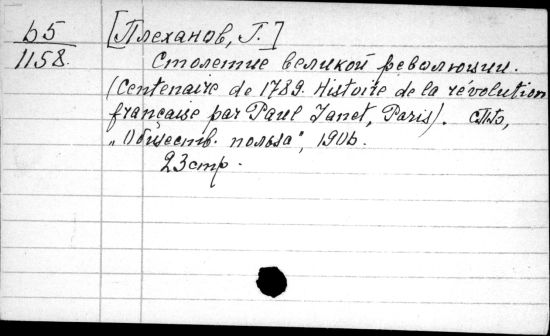 Б5
1158.
[Плеханов, Г.]
Столетие великой революции.
(Centenaire de 1789. Histoire de la révolution
française par Paul Janet, Paris). СПБ,
„Обществ. польза", 1906.
23 стр.